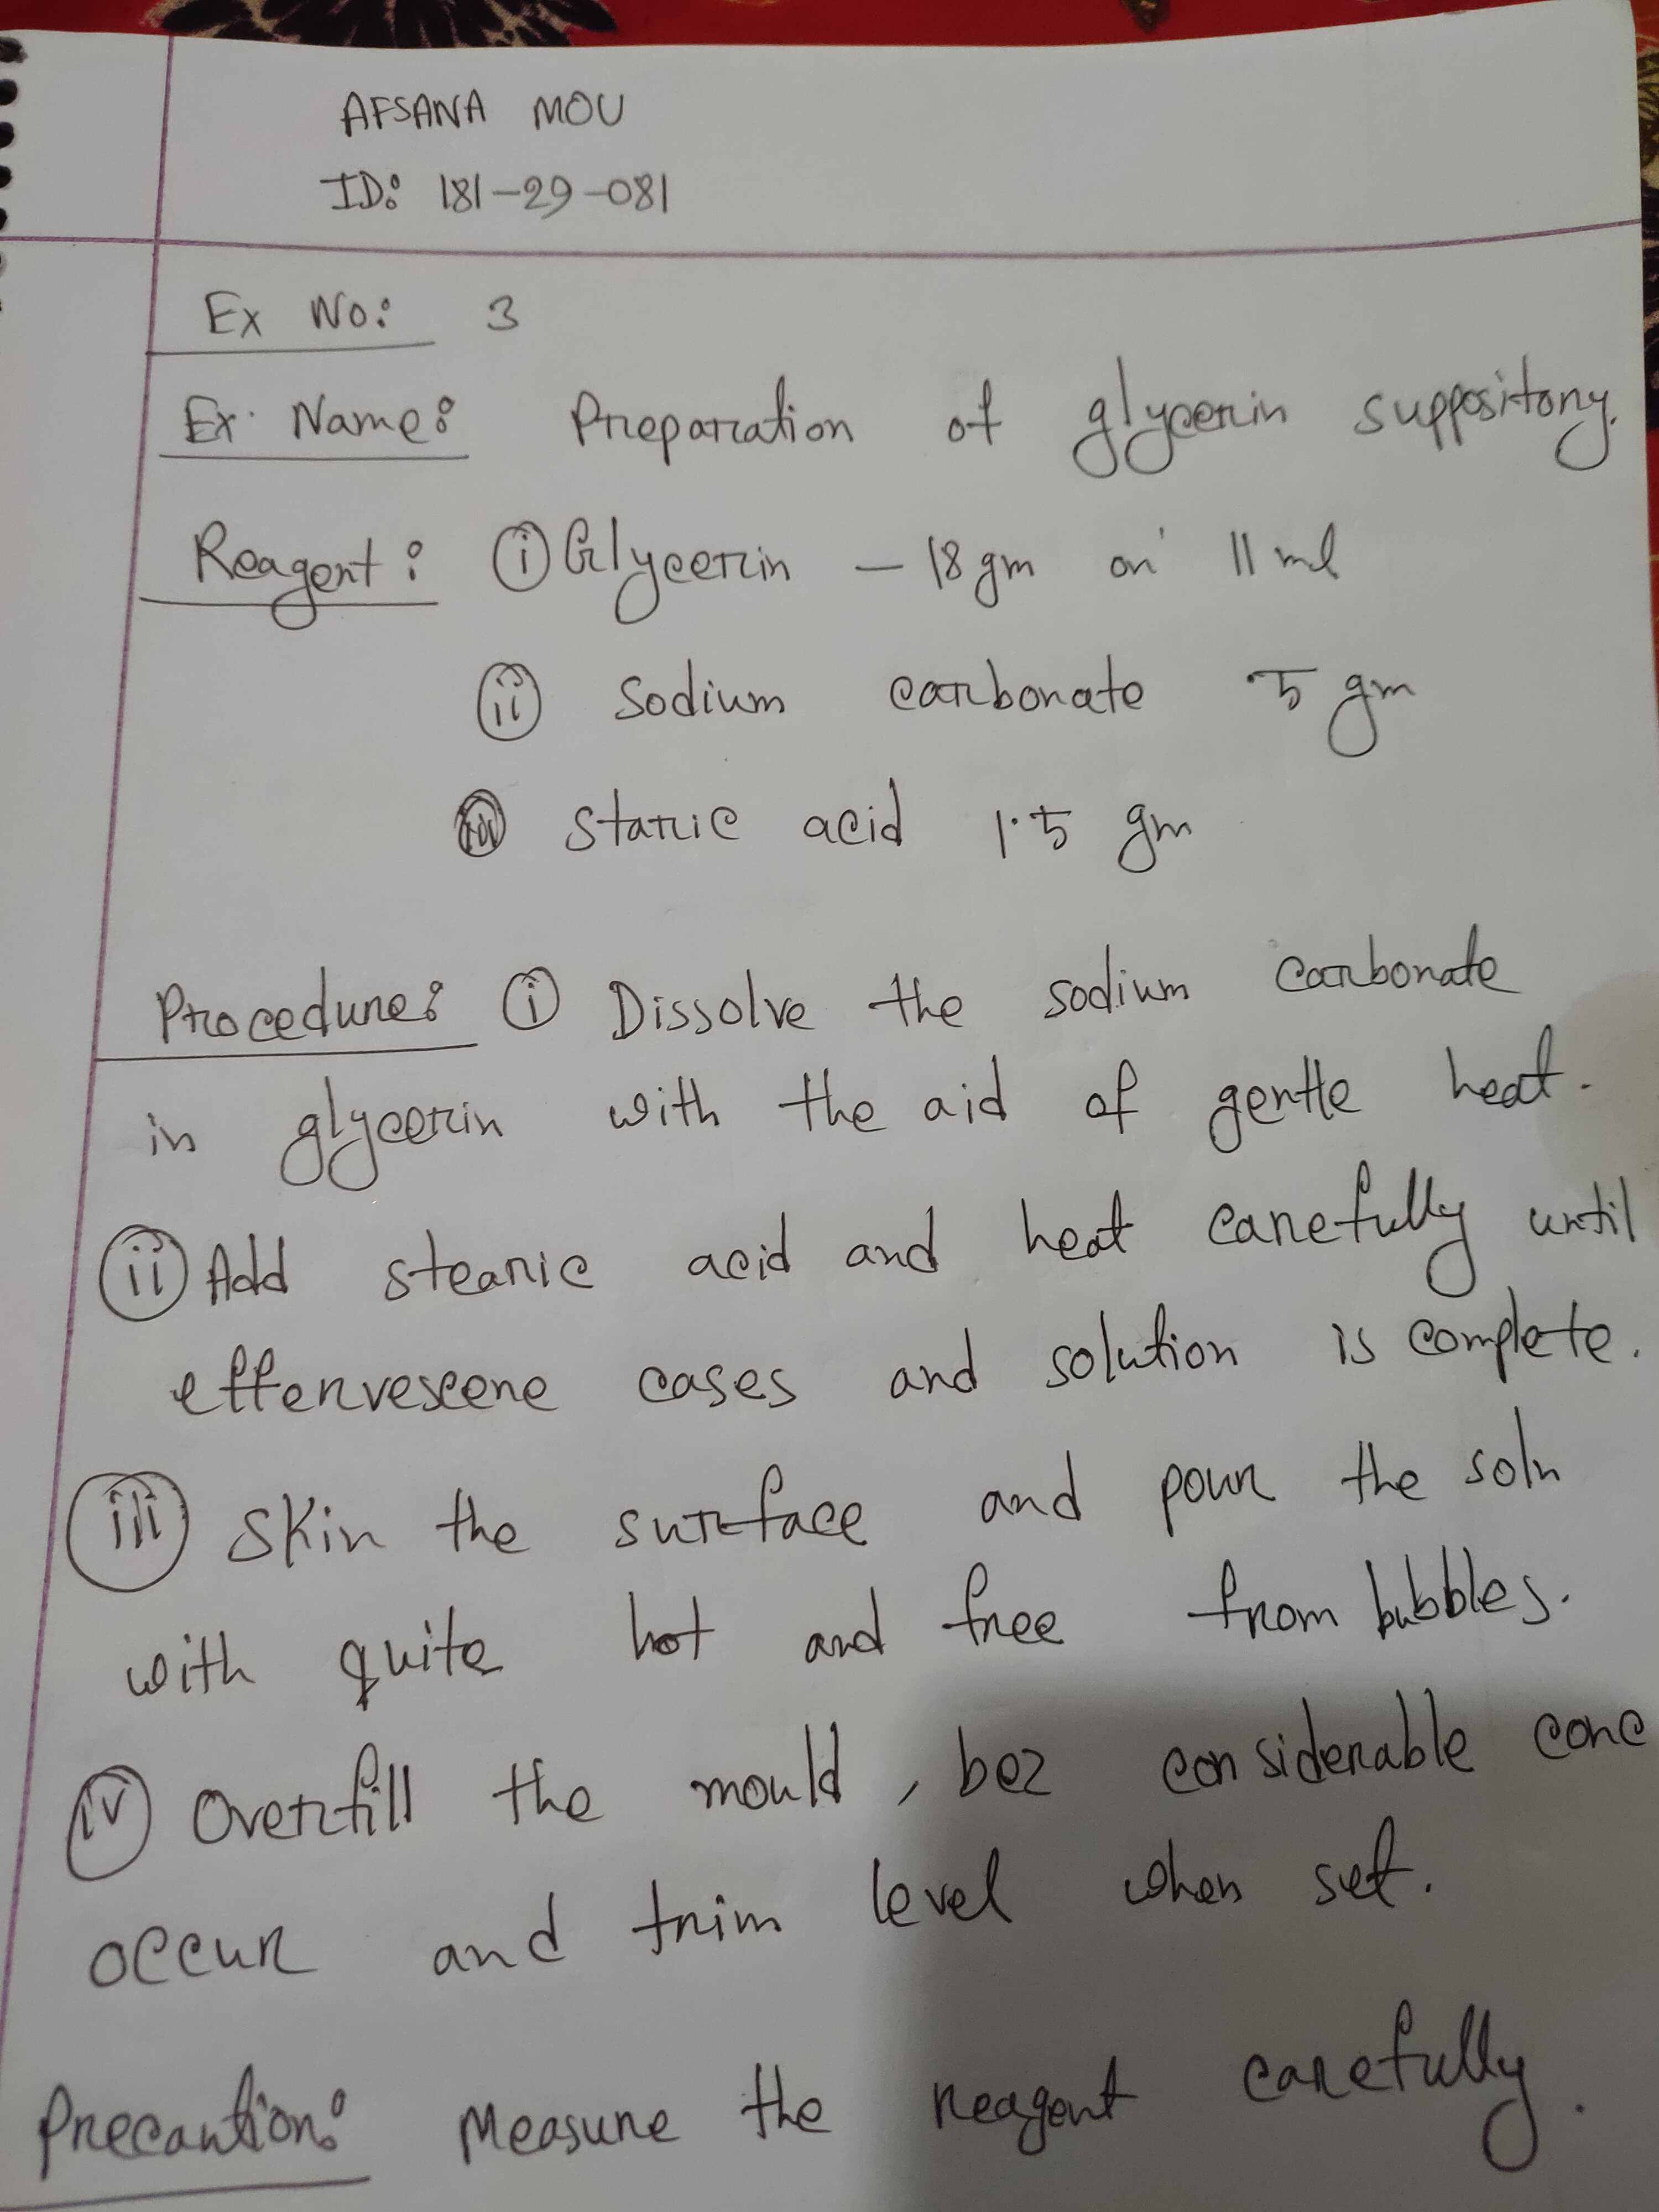 AFSANA MOU
ID: 181-29-081
Ex No: 3
Ex. Name: Preparation of glycerin suppository.
Reagent: (i) Glycerin - 18 gm or 11 ml
(ii) Sodium carbonate .5 gm
(iii) Staric acid 1.5 gm
Procedure: (i) Dissolve the sodium carbonate
in glycerin with the aid of gentle heat.
(ii) Add stearic acid and heat carefully until
effervescene cases and solution is complete.
(iii) Skin the surface and pour the soln
with quite hot and free from bubbles.
(iv) Overfill the mould, bez considerable conc
occur and trim level when set.
Precaution: Measure the reagent carefully.